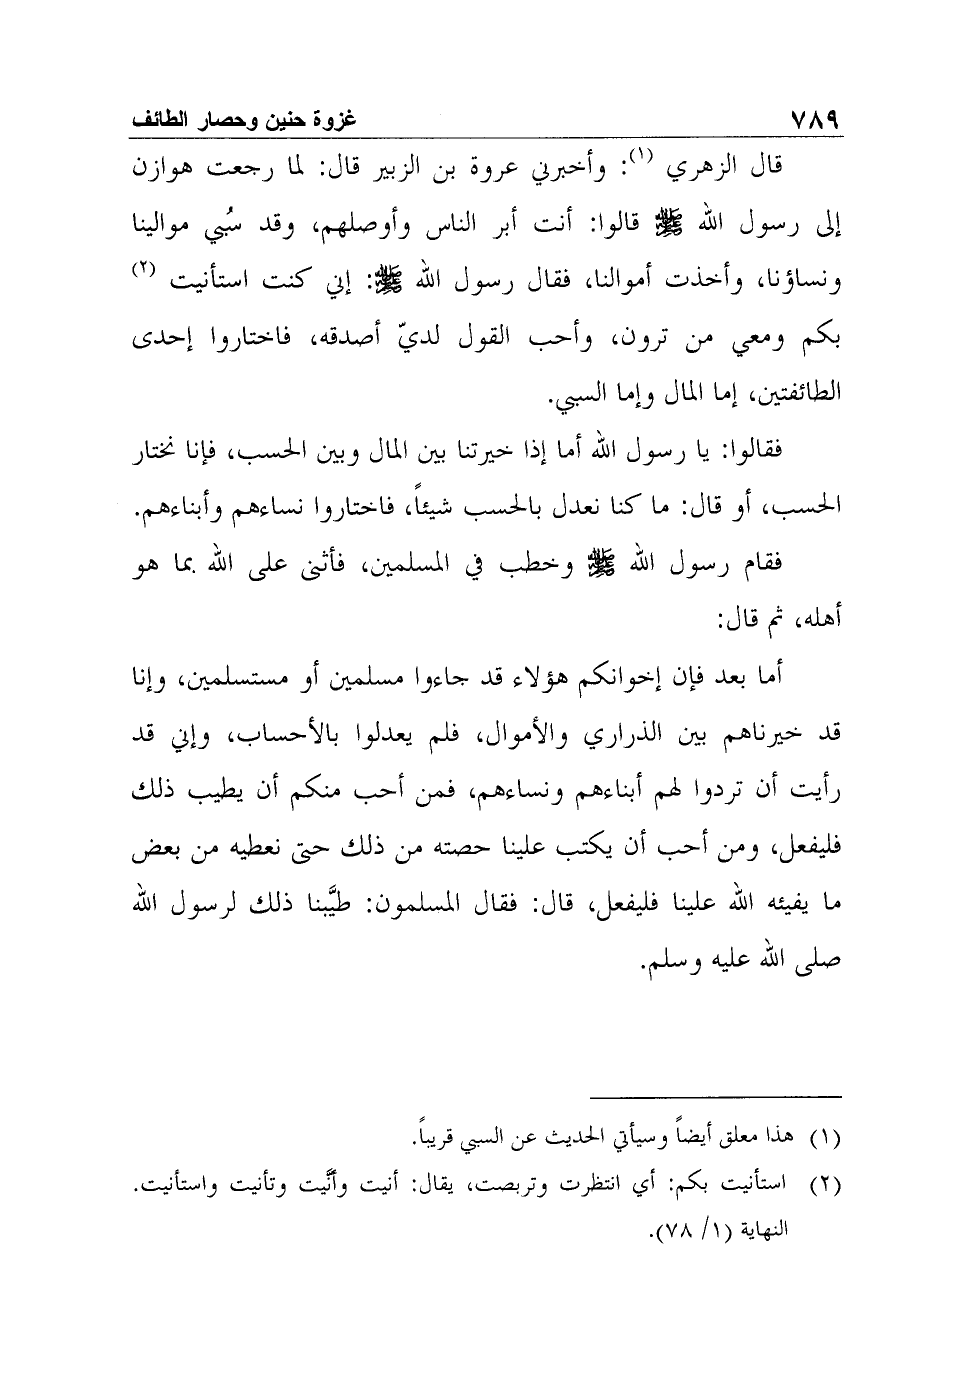 ٧٨٩ غزوة حنين وحصار الطائف
قال الزهري (١): وأخبرني عروة بن الزبير قال: لما رجعت هوازن
إلى رسول الله ﷺ قالوا: أنت أبر الناس وأوصلهم، وقد سُبي موالينا
ونساؤنا، وأخذت أموالنا، فقال رسول الله ﷺ: إني كنت استأنيت (٢)
بكم ومعي من ترون، وأحب القول لديّ أصدقه، فاختاروا إحدى
الطائفتين، إما المال وإما السبي.
فقالوا: يا رسول الله أما إذا خيرتنا بين المال وبين الحسب، فإنا نختار
الحسب، أو قال: ما كنا نعدل بالحسب شيئاً، فاختاروا نساءهم وأبناءهم.
فقام رسول الله ﷺ وخطب في المسلمين، فأثنى على الله بما هو
أهله، ثم قال:
أما بعد فإن إخوانكم هؤلاء قد جاءوا مسلمين أو مستسلمين، وإنا
قد خيرناهم بين الذراري والأموال، فلم يعدلوا بالأحساب، وإني قد
رأيت أن تردوا لهم أبناءهم ونساءهم، فمن أحب منكم أن يطيب ذلك
فليفعل، ومن أحب أن يكتب علينا حصته من ذلك حتى نعطيه من بعض
ما يفيئه الله علينا فليفعل، قال: فقال المسلمون: طيَّبنا ذلك لرسول الله
صلى الله عليه وسلم.
(١) هذا معلق أيضاً وسيأتي الحديث عن السبي قريباً.
(٢) استأنيت بكم: أي انتظرت وتربصت، يقال: أنيت وأنَّيت وتأنيت واستأنيت.
النهاية (١/ ٧٨).